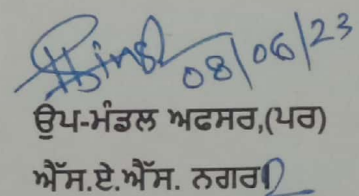 08/06/23
ਉਪ-ਮੰਡਲ ਅਫਸਰ,(ਪਰ)
ਐੱਸ.ਏ.ਐੱਸ. ਨਗਰ।